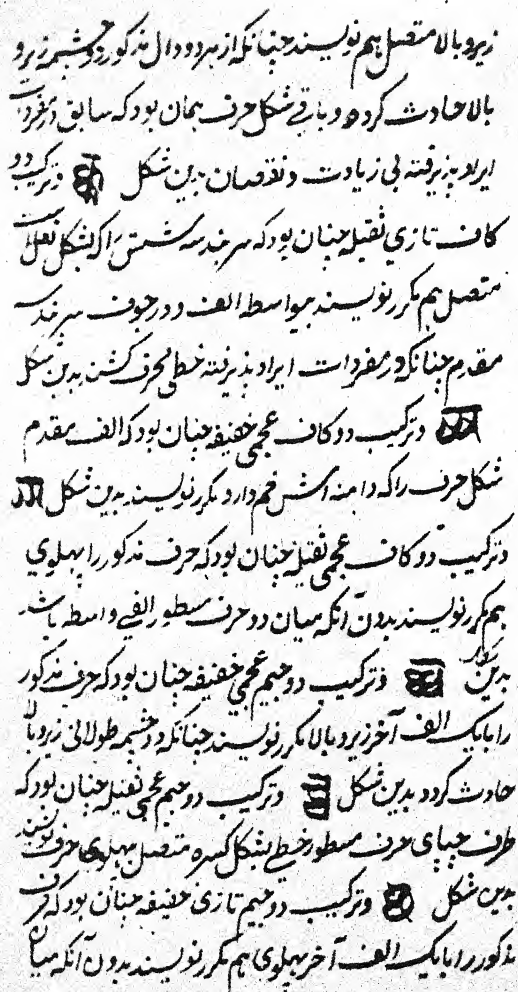 زیر و بالا متصل هم نویسند چنانکه از هر دو دال مذکور دو چشمه زیر و
بالا حادث گردد و باقی شکل حرف همان بود که سابق در مفردات
ایراد پذیرفته بی زیادت و نقصان بدین شکل و ترکیب دو
کاف تازی ثقیله چنان بود که سر هندسه شش را که بشکل نعل است
متصل هم مکرر نویسند بیواسطه الف و در جوف سر هندسه
مقدم چنانکه در مفردات ایراد پذیرفته خطی محرف کشند بدین شکل
و ترکیب دو کاف عجمی خفیفه چنان بود که الف مقدم
شکل حرف را که دامنه اش خم دارد مکرر نویسند بدین شکل
و ترکیب دو کاف عجمی ثقیله چنان بود که حرف مذکور را پهلوی
هم مکرر نویسند بدون آنکه میان دو حرف مسطور الفی واسطه باشد
بدین و ترکیب دو جیم عجمی خفیفه چنان بود که حرف مذکور
را با یک الف آخر زیر و بالا مکرر نویسند چنانکه دو چشمه طولانی زیر و بالا
حادث گردد بدین شکل و ترکیب دو جیم عجمی ثقیله چنان بود که
طرف چپای حرف مسطور خطی بشکل کسره متصل پهلوی حرف نویسند
بدین شکل و ترکیب دو جیم تازی خفیفه چنان بود که حرف
مذکور را با یک الف آخر پهلوی هم مکرر نویسند بدون آنکه میان